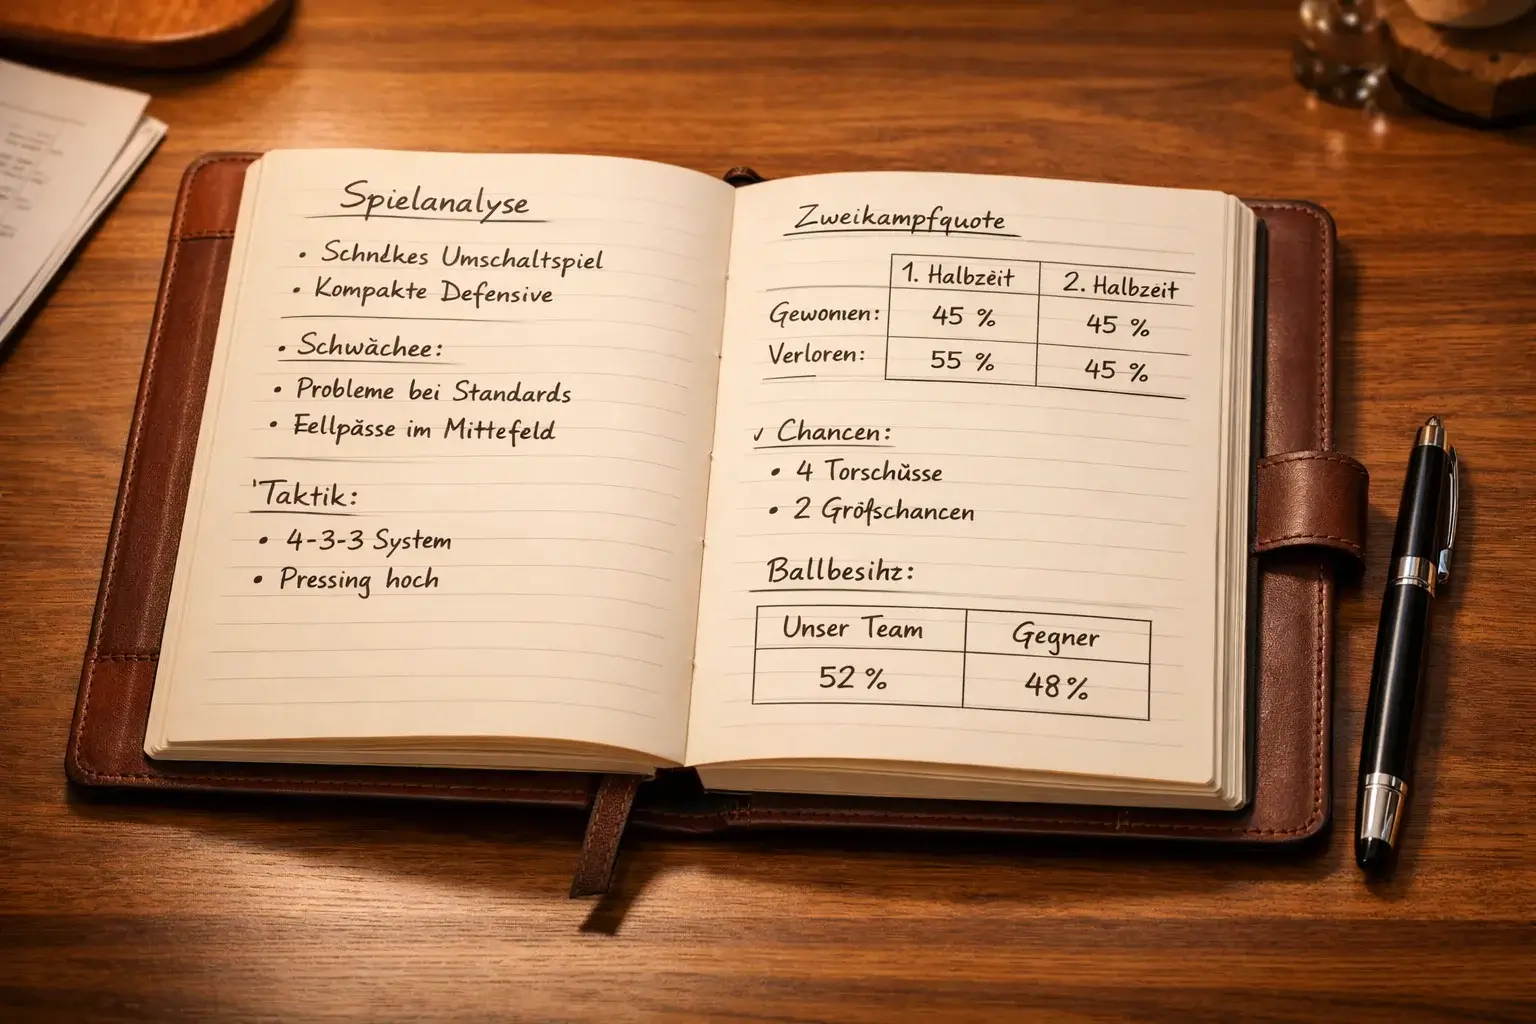 Spielanalyse
• Schndkes Umschaltspiel
• Kompakte Defensive
• Schwächee:
• Probleme bei Standards
• Eellpässe im Mittefeld
'Taktik:
• 4-3-3 System
• Pressing hoch
Zweikampfquote
1. Halbzeit 2. Halbzeit
Gewonıen: 45 % 45 %
Verloren: 55 % 45 %
✓ Chancen:
• 4 Torschüsse
• 2 Großschancen
Ballbesihz:
Unser Team Gegner
52 % 48 %